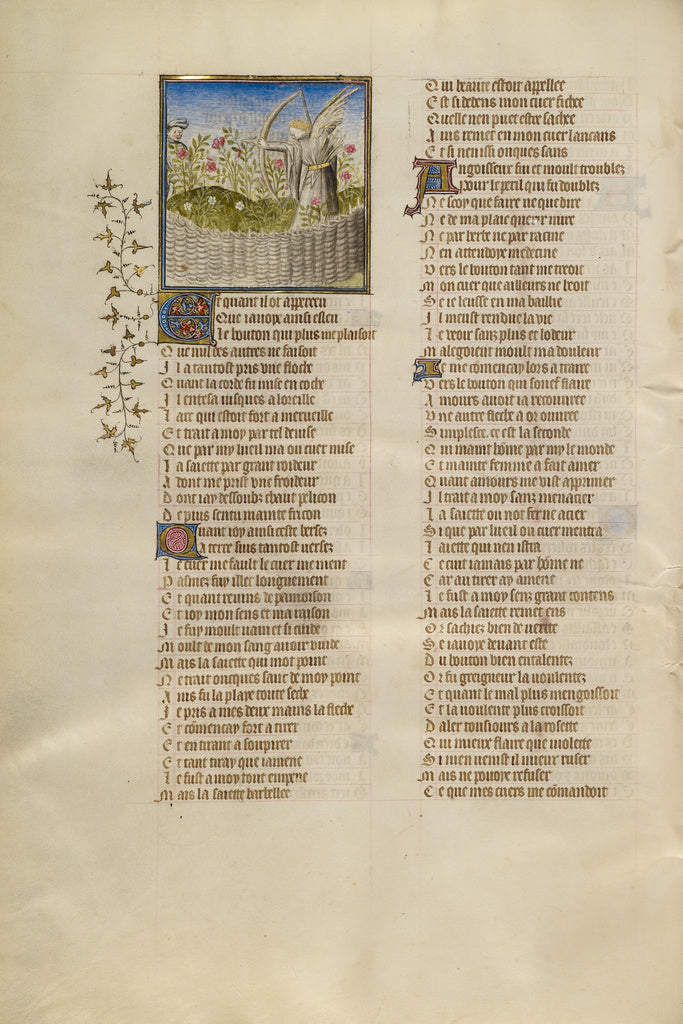 Et quant il ot apperceu
Que iauoye ainsi esleu
Le bouton qui plus me plaisoit
Que nul des autres ne faisoit
Il a tantost pris vne floche
Quant la corde fu mise en coche
Il entesa iusques a loreille
Larc qui estoit fort a merueille
Et trait a moy par tel deuise
Que par my lueil ma ou cuer mise
La saiette par grant roideur
Adont me prist vne froideur
Dont iay dessoubz chaut pelicon
Depuis sentu mainte fricon
Quant ioy ainsi este bersez
A terre fuis tantost versez
Le cuer me fault le cuer me ment
Pasmez fuy illec longuement
Et quant reuins de pamoison
Et ioy mon sens et ma raison
Je fuy moult vain et si cuide
Moult de mon sang auoir vuide
Mais la saiette qui mot point
Ne trait oncques sanc de moy point
Ains fu la playe toute seche
Je pris a mes deux mains la fleche
Et cōmencay fort a tirer
Et en tirant a soupirer
Et tant tiray que iamene
Le fust a moy tout empene
Mais la saiette barbellee
Qui beaute estoit appellee
Est si dedens mon cuer fichee
Quelle nen puet estre sachee
Ains remet en mon cuer lancans
Et si nen issi onques sans
Angoisseux fui et moult troublez
pour le peril qui fu doublez
Ne scoy que faire ne que dire
Ne de ma plaie querir mire
Ne par herbe ne par racine
Nen attendoye medecine
Vers le bouton tant me treoit
Mon cuer que ailleurs ne beoit
Se ie leusse en ma baillie
Il meust rendue la vie
Le veoir sanz plus et lodeur
Malegoient moult ma douleur
Je me cōmencay lors a traire
Vers le bouton qui souef flaire
Amours auoit ia recouuree
Vne autre fleche a or ouuree
Simplesce. ce est la seconde
Qui maint hōme par my le monde
Et mainte femme a fait amer
Quant amours me vist apprimer
Il trait a moy sanz menacier
La saiette ou not fer ne acier
Si que par lueil ou cuer mentra
La iette qui nen istra
Ce cuit iamais par hōme ne
Car au tirer ay amene
Le fust a moy senz grant contens
Mais la saiette remet ens
Or sachiez bien de verite
Se iauoye deuant este
Du bouton bien entalentez
Or fu greigneur la voulentez
Et quant le mal plus mengoissoit
Et la voulente plus croissoit
Daler tousiours a la rosette
Qui mieux flaire que violette
Si men venist il mieux ruser
Mais ne pouoye refuser
Ce que mes cuers me cōmandoit